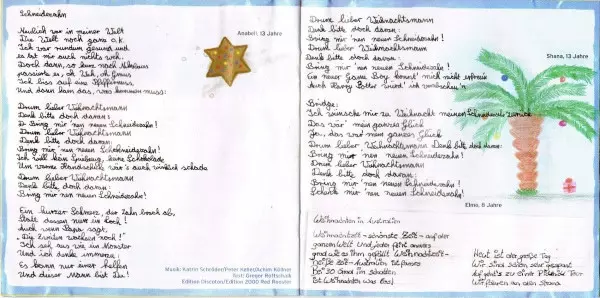 Schneidezahn
Anabell, 13 Jahre
Neulich war in meiner Welt
Die Welt noch ganz o.k.
Ich war rundum gesund und
es tat mir auch nichts weh.
Doch dann, so kurz nach Nikolaus
passierte es, oh Weh, oh Graus
Ich biss auf eine Pfeffernuss,
Und dann kam das, was kommen muss:
Drum lieber Weihnachtsmann
Denk bitte doch daran:
Bring mir 'nen neuen Schneidezahn!
Drum lieber Weihnachtsmann
Denk bitte doch daran:
Bring mir 'nen neuen Schneidezahn!
Ich will kein Spielzeug, keine Schokolade
Und warme Handschuhe wär's auch wirklich schade
Drum lieber Weihnachtsmann
Denk bitte doch daran:
Bring mir nen neuen Schneidezahn!
Ein kurzer Schmerz, der Zahn brach ab,
Statt dessen nur ein Loch!
Auch wenn Papa sagt,
"Die Zweiten wachsen noch!"
Ich seh aus wie ein Monster
Und ich denke immerzu:
Es kann nur einer helfen
Und dieser Mann bist Du!
Musik: Katrin Schröder/Peter Hahn/Achim Köllner
Text: Gregor Rottschalk
Edition Discoton/Edition 2000 Red Rooster
Drum lieber Weihnachtsmann
Denk bitte doch daran:
Bring mir 'nen neuen Schneidezahn!
Drum lieber Weihnachtsmann
Denk bitte doch daran:
Bring mir 'nen neuen Schneidezahn!
Ein neuer Game Boy könnt' mich nicht erfreu'n
Auch Harry Potter würd' ich verzeih'n
Bridge:
Ich wünsche mir zu Weihnacht meinen Schneidezahn zurück
Das wär' mein ganzes Glück
Ja, das wär mein ganzes Glück
Drum lieber Weihnachtsmann Denk bitte doch daran:
Bring mir nen neuen Schneidezahn!
Drum lieber Weihnachtsmann
Denk bitte doch daran:
Bring mir nen neuen Schneidezahn!
Schick mir nen neuen Schneidezahn!
Shana, 13 Jahre
Elmo, 6 Jahre
Weihnachten in Australien
Weihnachtszeit - schönste Zeit - auf der
ganzen Welt Und jeder feiert anders
grad wie es ihm gefällt Weihnachtszeit -
heiße Zeit - Australien ist
Bei 30 Grad im Schatten
Ist Weihnachten was los!
Heut ist der große Tag
Wir sind schon sehr gespannt
Auf geht's zu einer Picknick Tour
Wir fahren an den Strand